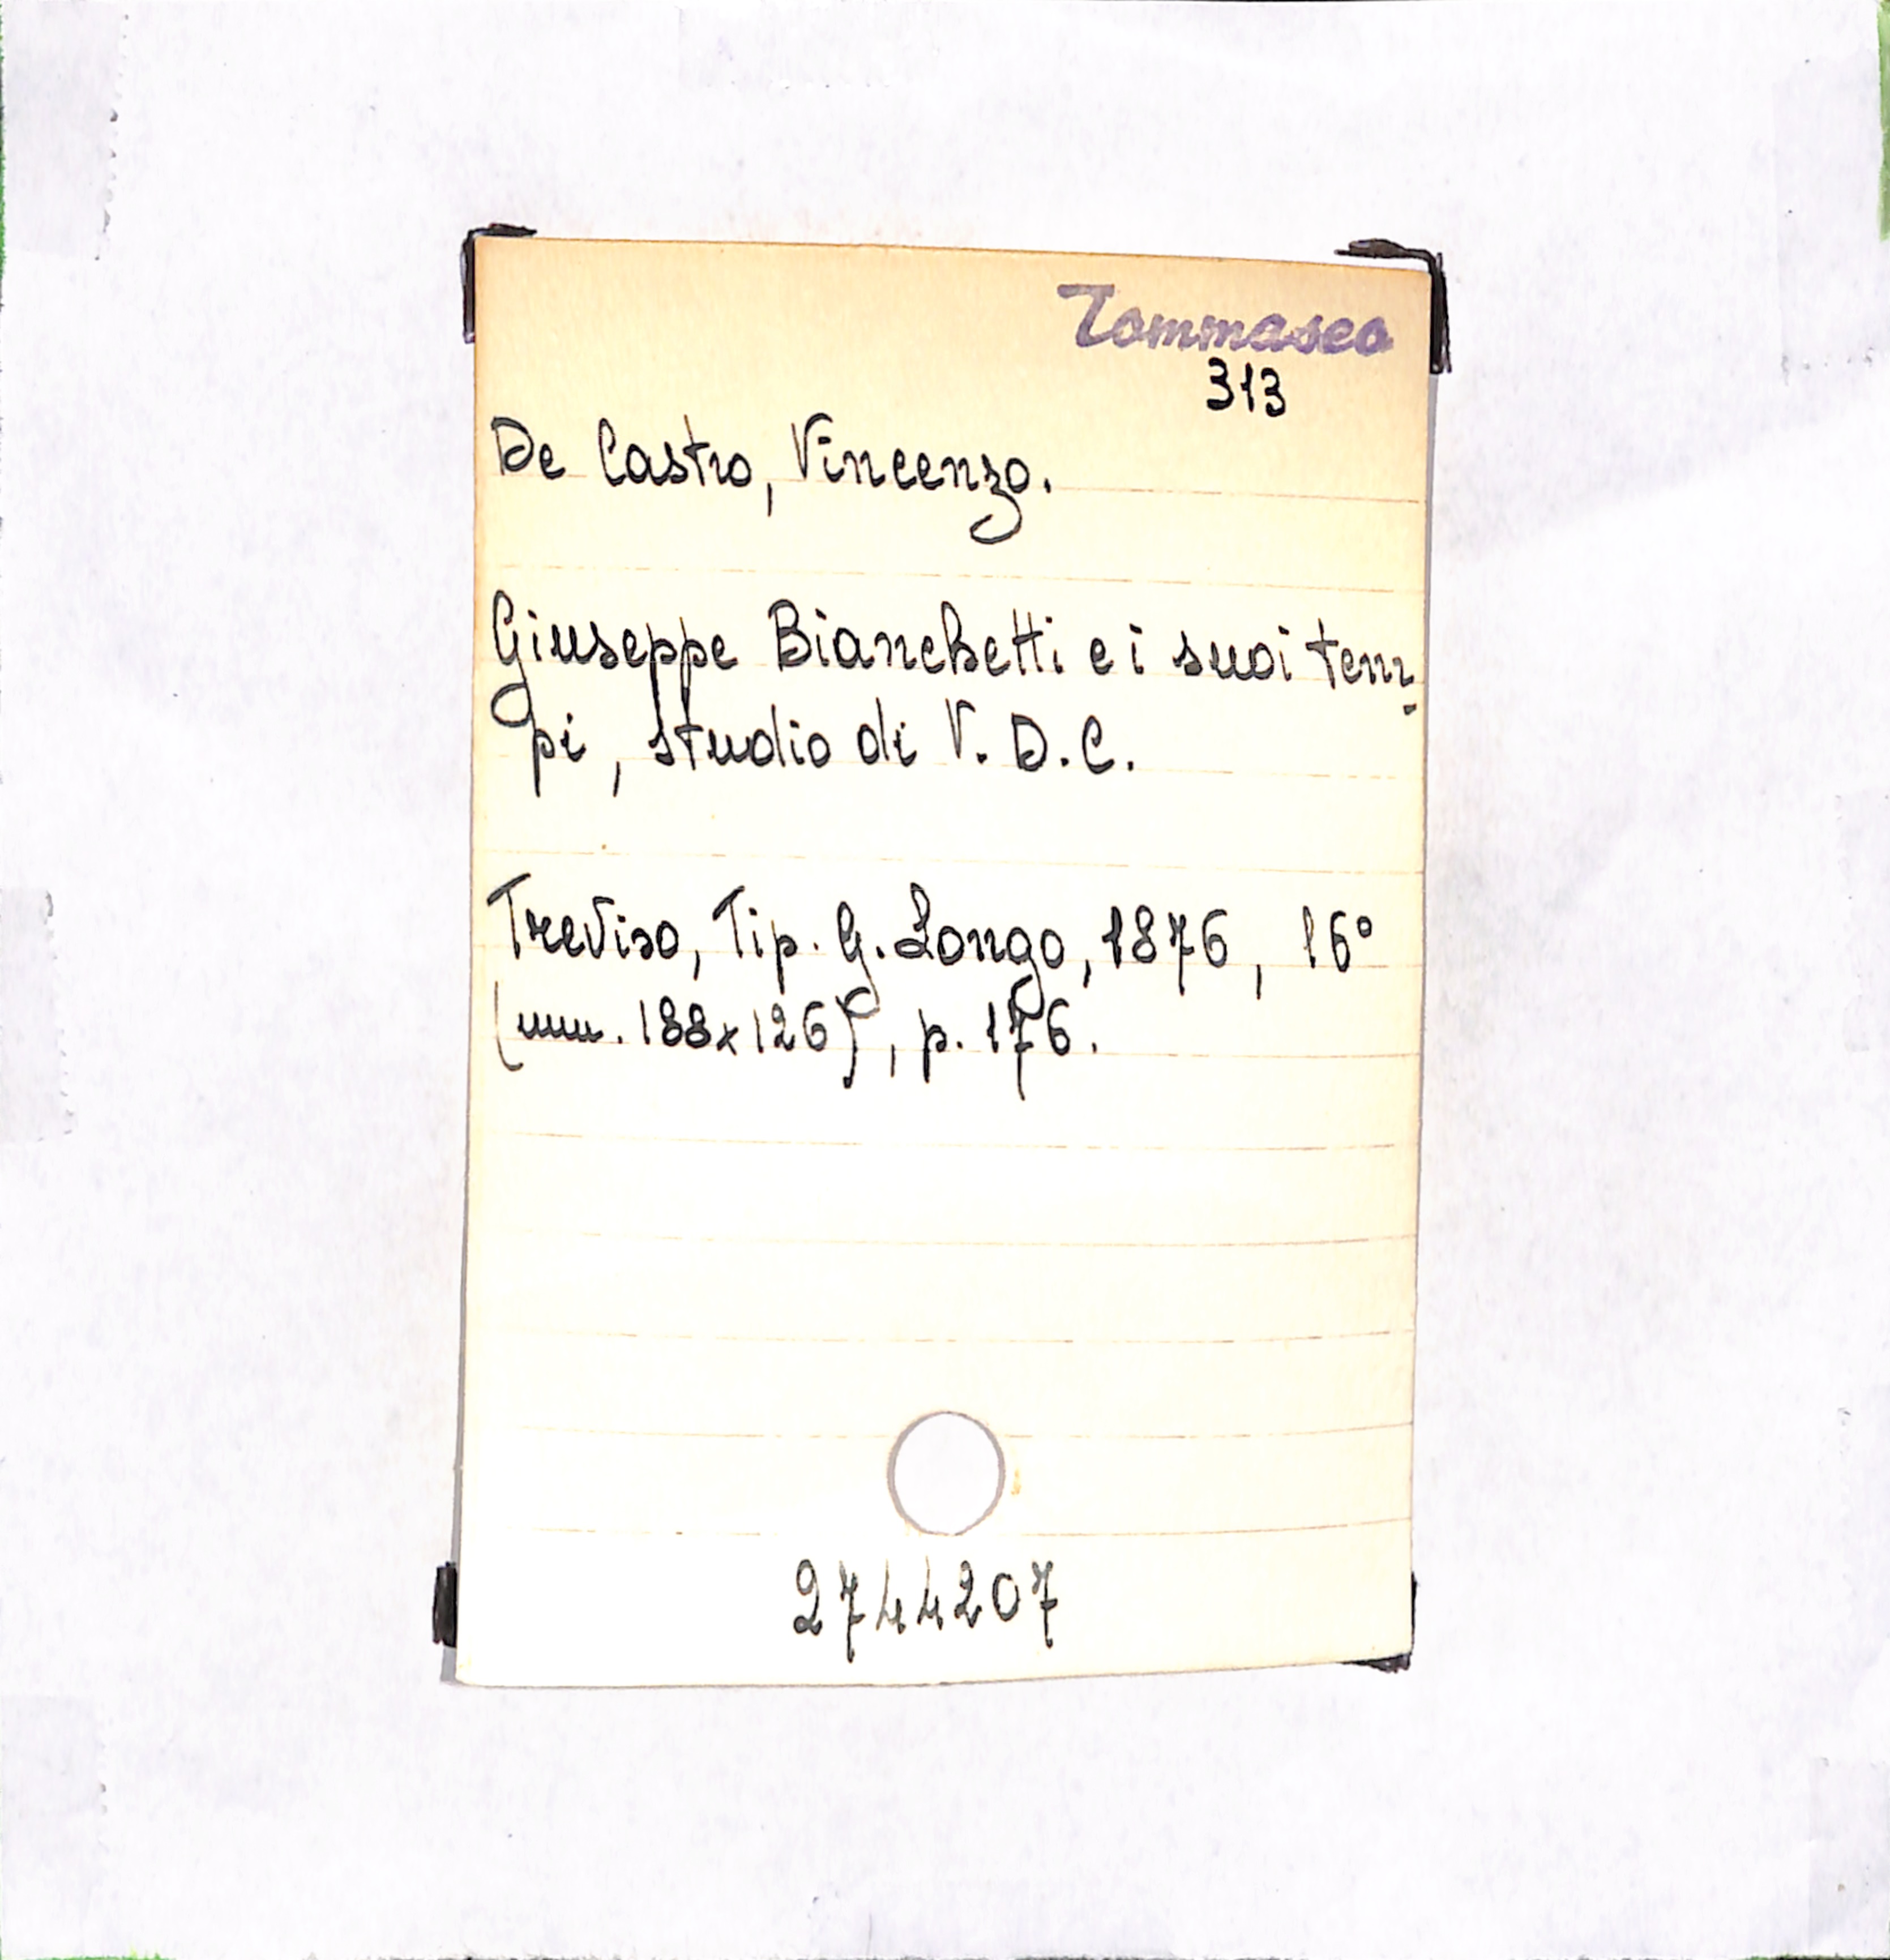 Tommaseo
313
De Castro, Vincenzo.
Giuseppe Bianchetti e i suoi tem-
pi, studio di V. D. C.
Treviso, Tip. G. Longo, 1876, 16°
(mm. 188x126), p. 176.
2744207